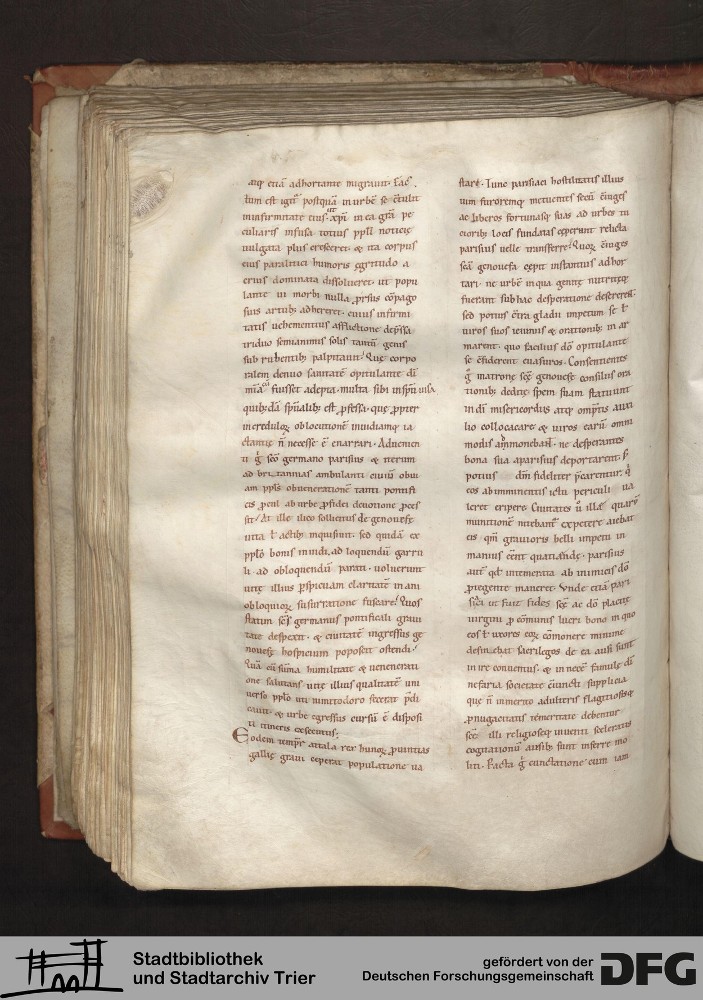 atq; etiā adhortante migrauit. Fac
tum est igit postquā in urbē se ctulit
ut in infirmitate eius xp̄i in ea grā pe
culiaris infusa totius ppl̄i noticiȩ
uulgata plus cresceret. & ita corpus
eius paralitici humoris ȩgritudo a
crius dominata dissolueret. ut popu
lante ui morbi nulla prsus cōpago
suis artub; adhereret. cuius infirmi
tatis uehementius afflictione depssa
triduo semianimis solis tantū genis
sub rubentib; palpitauit. Quȩ corpo
ralem denuo sanitatē opitulante dī
fuisset adepta. multa sibi inspiri
quib;dā sp̄ualib; est p̄fessa. quȩ ppter
incredulor oblocutione inuidiamq; ia
ctantiȩ n̄ necesse ē enarrari. Aduenien
ti g̊ scō germano parisius & iterum
ad britannias ambulanti euiū obui
am ppl̄s obueneratione tanti pontifi
cis pcul ab urbe pfidei deuotione pces
sit. At ille ilico sollicitus de genouefȩ
uita l actib; inquisiuit. sed quidā ex
ppl̄o bonis inuidi. ad loquendū garru
li. ad obloquendū parati. uoluerunt
uitȩ illius pspicuam claritatē inani
obloquior susurratione fuscare. Quos
statim scs̄ germanus pontificali graui
tate despexit. & ciuitatē ingressus ge
nouefȩ hospicium poposcit ostendi.
Quā cū sūma humilitate & uenerati
one salutans uitȩ illius qualitatē uni
uerso ppl̄o uti nimetodoro fecerat pdi
cauit. & urbe egressus cursū ē disposi
ti itineris exsecutus.
Eodem tempr attala rex hunor puintias
galliȩ graui ceperat populatione ua
stare. Tunc parisiaci hostilitatis illius
uim furoremq; metuentes secū ciuges
ac liberos fortunasq; suas ad urbes tu
cioribz locis fundatas ceperunt relicta
parisius uelle transferre. Quor ciuges
scā genouefa cepit instantius adhor
tari. ne urbē in qua genitȩ nutritȩq;
fuerant sub hac desperatione desererent.
sed potius ctra gladii impetum se l
uiros suos ieiuniis & orationib; in ar
marent. quo facilius dō opitulante
se cfiderent euasuros. Consentientes
g̊ matronȩ scȩ genouefȩ consiliis ora
tionib; deditȩ spem suam statuunt
in dī misericordiis atq; omptis auxi
lio collocacare & uiros earū omni
modis ammonebant. ne desperantes
bona sua aparisius deportarent. s;
potius dm̄ fideliter pcarentur. q̊
eos ab imminentis ictu periculi ua
leret eripere. Ciuitates ū illas quarū
munitionē nitebant expetere aiebat
eis. qm̄ grauioris belli impetu in
manius eēnt quatiandȩ. parisius
aut qd intemerata ab inimicis dō
ptegente maneret. Vnde etiā pari
siaci ut fuit fides scȩ ac dō placitȩ
uirgini p cōmunis lucri bono in quo
eos l uxores eor cōmonere minime
desinebat sacrilegos de ea ausi sunt
inire conuentus. & in necē famulȩ dī
nefaria societate cūncti supplicia
quȩ n̄ inmerito adulteris flagitiosisq;
pnugacitatis temeritate debentur
scȩ illi religioseq; uiuenti sceleratis
cogitationū ausib; sunt inferre mo
liti. Facta g̊ cunctatione cum iam
Stadtbibliothek
und Stadtarchiv Trier
gefördert von der
Deutschen Forschungsgemeinschaft
DFG